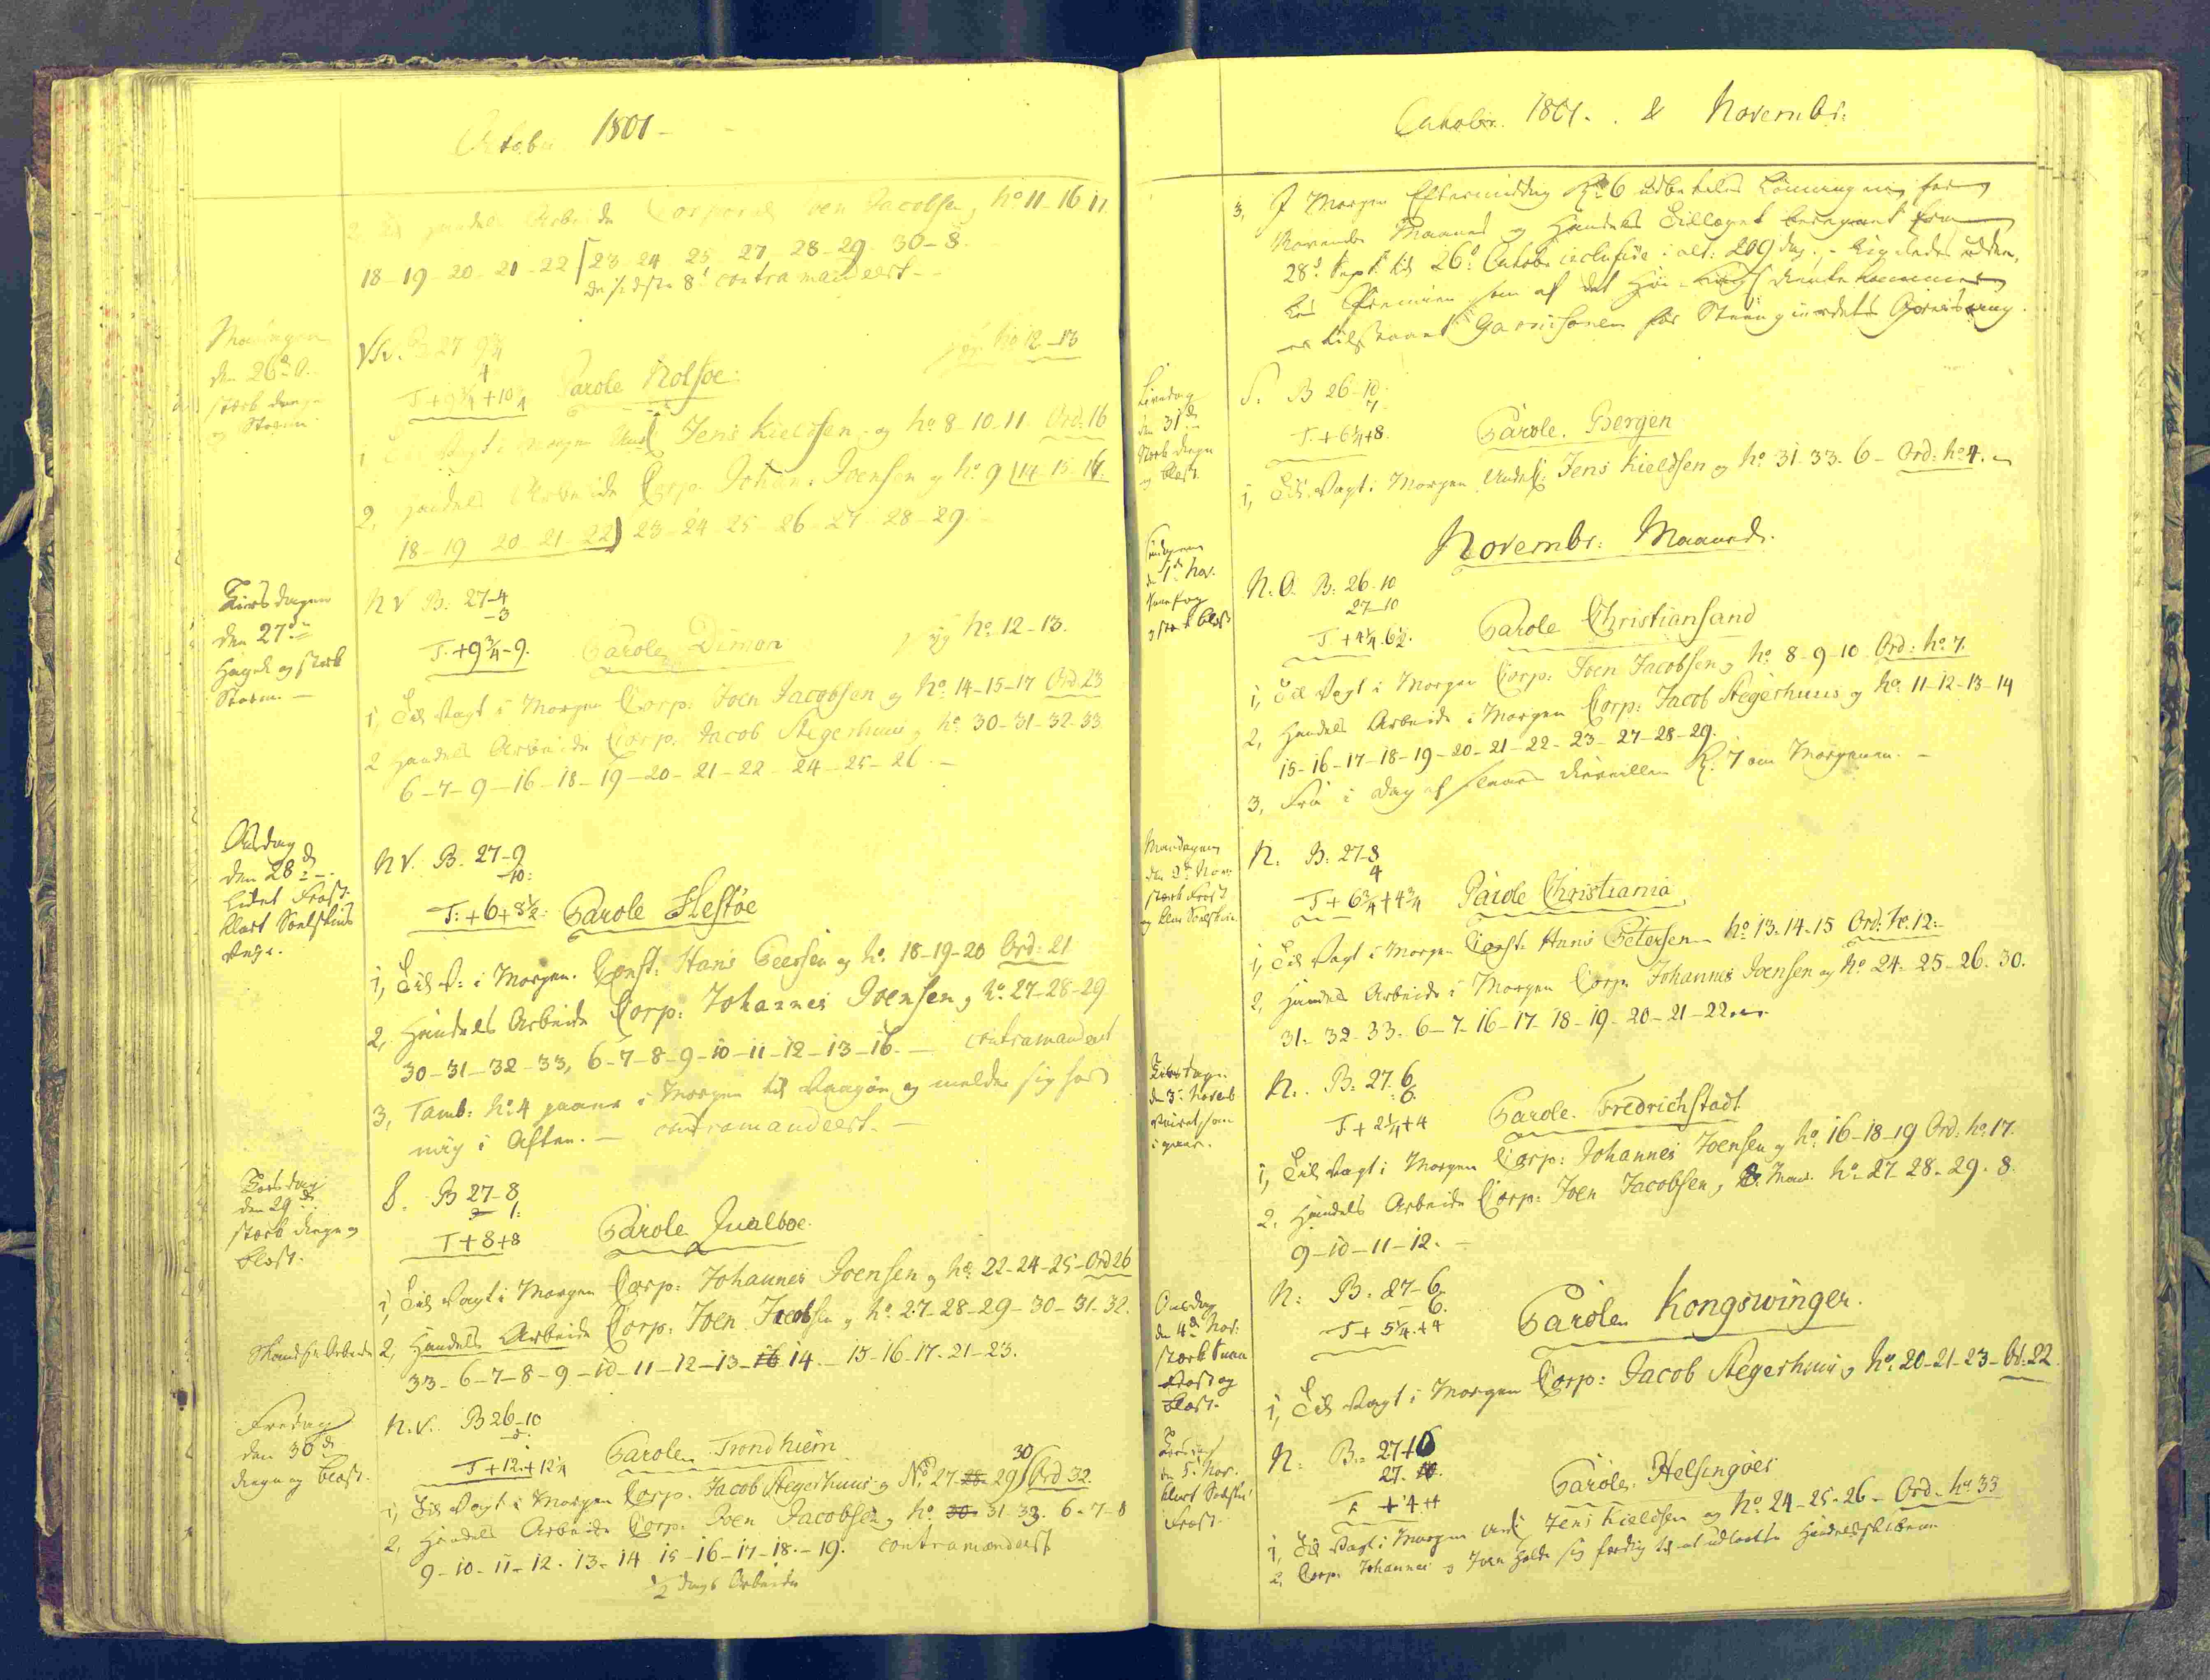 October 1801 -
2, Til Handels Arbeide Corporal Joen Jacobsen, No 11 - 16 17.
18 - 19 - 20 - 21 - 22 / 23 24 25 27 28 - 29 30 - 8.
de sidste 8t contramandeert -
Mandagen
den 26de O.
stærk
og Storm
B 27 9 3/4
4
No 12 - 13
T + 9 3/4 + 10 3/4 Parole Nolsöe.
1 Til Vagt i Morgen Und: Jens Kieldsen og No 8 - 10 - 11 Ord: 16
2, Handels Arbeide Corp. Johan: Joensen og No 9 (14 - 15 - 17.
18 - 19 20 - 21 - 22) 23 - 24 - 25 - 26 - 27 - 28 - 29. -
Tirsdagen
den 27de
Hagel og stærk
Storm. -
N V B: 27 - 4
- 3
T. + 9 3/4 - 9. Parole Dimon syg No. 12 - 13.
1, Til Vagt i Morgen Corp: Joen Jacobsen og No. 14 - 15 - 17 Ord: 23
2 Handels Arbeide Corp: Jacob Stegerhuus, No. 30 - 31 - 32 - 33
6 - 7 - 9 - 16 - 18 - 19 - 20 - 21 - 22 - 24 - 25 - 26. -
Onsdag
den 28de
Lidet Frost
klart Soelskins
N V. B. 27 - 9
10:
T: + 6 + 8 1/2: Parole Hestöe
1, Til V: i Morgen. Const: Hans Peersen og No. 18 - 19 - 20 Ord: 21
2, Handels Arbeide Corp: Johannes Joensen, No. 27 - 28 - 29
30 - 31 - 32 - 33, 6 - 7 - 8 - 9 - 10 - 11 - 12 - 13 - 16. - contramandeert
3, Tamb: No: 4 gaaer i Morgen til Vaagöe og melder sig hos
mig i Aften. - contramandeert. -
Torsdag
den 29de
stærk Regn og
Blæst.
S. B 27 - 8
1:
T + 8 + 8 Parole Qualboe.
1, Til Vagt i Morgen Corp: Johannes Joensen og No: 22 - 24 - 25 - Ord 26
2, Handels Arbeide Corp: Joen Jacobsen og No. 27 - 28 - 29 - 30 - 31 - 32.
33 - 6 - 7 - 8 - 9 - 10 - 11 - 12 - 13 - 16 14. - 15 - 16 - 17. 21 - 23.
Fredag
den 30de
Regn og Blæst.
N. V. B 26 - 10
T + 12. + 12 1/4 Parole Trondhiem
1, Til Vagt i Morgen Corp. Jacob Stegerhuus og No. 27 - 28 - 29 30 / Ord 32.
2, Handels Arbeide Corp: Joen Jacobsen, No. 30 - 31 - 33. 6 - 7 - 8
9 - 10 - 11 - 12 - 13 - 14 15 - 16 - 17 - 18. - 19. contramandeert
1/2 Dags Arbeide
October 1801. & Novembr:
3, I Morgen Eftermiddag Kl: 6 udbetales Lönningen for
November Maaned og Handels Tillæget beregnet fra
28de Sept: til 26de October inclusive i alt: 209 dag.
Premien som af det Höi Kongl Rente Kammer
er tilstaaet Garnisonen for
Löverdag
den 31de
Stærk Regn
og Blæst
S. B 26 - 10:
7.
T. + 6 1/4 + 8. Parole. Bergen
1, Til Vagt i Morgen Underk: Jens Kieldsen og No. 31. 33. 6 - Ord: No 4.
Novembr: Maaned.
Söndagen
d 1de Nov.
Sneefog
og stærk Blæst
N. O. B: 26 - 10
27 - 10
T + 4 1/4 6 1/2. Parole Christiansand
1, Til Vagt i Morgen Corp: Joen Jacobsen, No. 8 - 9 - 10 Ord: No 7.
2, Handels Arbeide i Morgen Corp: Jacob Stegerhuus og No. 11 - 12 - 13 - 14
15 - 16 - 17 - 18 - 19 - 20 - 21 - 22 - 23 - 27 - 28 - 29.
3, Fra i Dag af slaaes Reveillen Kl: 7 om Morgenen. -
Mandagen
den 2de Nov:
stærk Frost
og klar Soelskin
N. B: 27 - 8
4
T + 6 3/4 + 4 3/4 Parole Christiania
1, Til Vagt i Morgen Const. Hans Petersen No. 13 - 14 - 15 Ord: No. 12:
2, Handels Arbeide i Morgen Corp: Johannes Joensen og No. 24 - 25 - 26 - 30.
31. 32 - 33. 6 - 7 - 16 - 17 - 18 - 19 - 20 - 21 - 22.
Tirsdagen
den 3: Novemb
Veiret som
i gaar.
N. B: 27. 6
6.
T + 2 1/4 + 4 Parole. Fredrichstadt
1, Til Vagt i Morgen Corp: Johannes Joensen og No. 16 - 18 - 19 Ord: No. 17.
2, Handels Arbeide Corp: Joen Jacobsen, 8. Mand. No. 27 - 28 - 29. 8
9 - 10 - 11 - 12. -
Onsdag
den 4de Nov:
stærk Snee
Frost og
Blæst.
N: B. 27 - 6
6.
T + 5 1/4. + 4 Parole. Kongswinger.
1, Til Vagt i Morgen Corp: Jacob Stegerhuus og No. 20 - 21 - 23 - Ord: 22
Torsdag
den 5: Nov.
klart Soelskin
Frost
N: B.. 27 + 6
27. 10.
T + 4 + Parole. Helsingöer
1, Til Vagt i Morgen Und: Jens Kieldsen og No. 24 - 25 - 26 - Ord - No. 33
2, Corp: Johannes og Joen holde sig færdig til at udlosse Handelsskibene